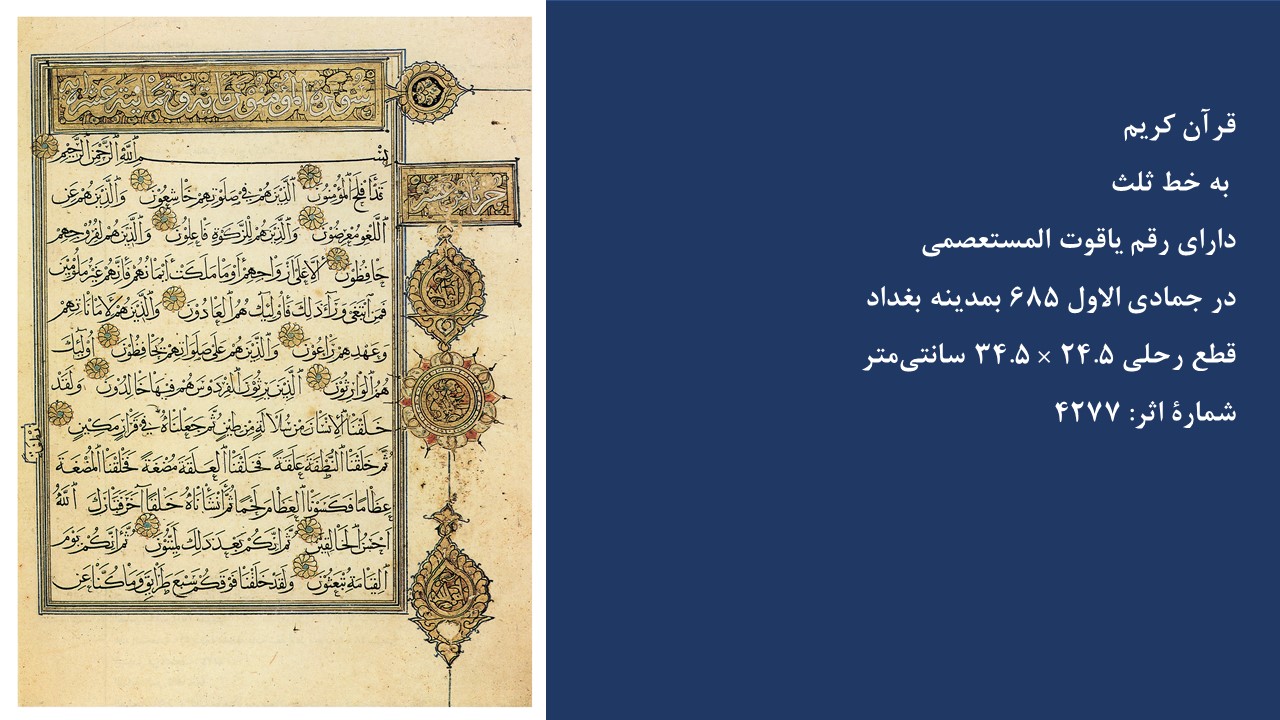 قرآن کریم
به خط ثلث
دارای رقم یاقوت المستعصمی
در جمادی الاول ۶۸۵ بمدینه بغداد
قطع رحلی ۲۴.۵ × ۳۴.۵ سانتی‌متر
شمارهٔ اثر: ۴۲۷۷
سورة المؤمنون مائة وثمانية عشرة
بسم الله الرحمن الرحيم
قد أفلح المؤمنون الذين هم في صلوتهم خاشعون والذين هم عن
اللغو معرضون والذين هم للزكوة فاعلون والذين هم لفروجهم
حافظون الا على أزواجهم أو ما ملكت أيمانهم فإنهم غير ملومين
فمن ابتغى وراء ذلك فأوليك هم العادون والذين هم لاماناتهم
وعهدهم راعون والذين هم على صلواتهم يحافظون أوليك
هم الوارثون الذين يرثون الفردوس هم فيها خالدون ولقد
خلقنا الانسان من سلالة من طين ثم جعلناه في قرار مكين
ثم خلقنا النطفة علقة فخلقنا العلقة مضغة فخلقنا المضغة
عظاما فكسونا العظام لحما ثم أنشأناه خلقا آخر فتبارك الله
أحسن الخالقين ثم إنكم بعد ذلك لميتون ثم إنكم يوم
القيامة تبعثون ولقد خلقنا فوقكم سبع طرايق وما كنا عن